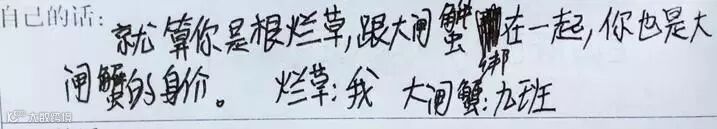 自己的话：
就算你是根烂草，跟大闸蟹绑在一起，你也是大
闸蟹的身价。 烂草：我 大闸蟹：九班